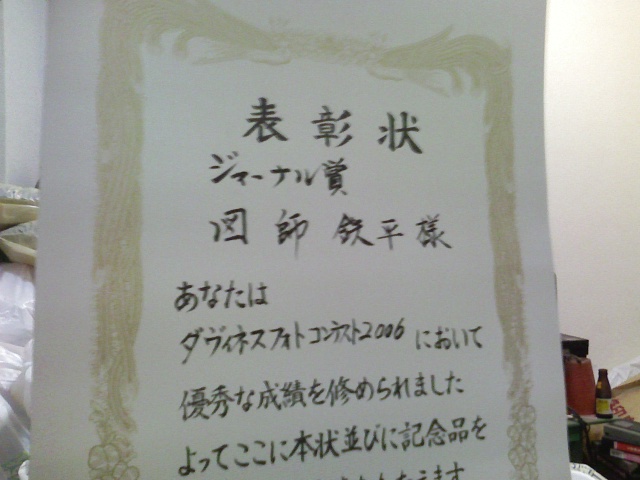 表彰状
ジャーナル賞
図師 鉄平様
あなたは
ダヴィネスフォトコンテスト2006 において
優秀な成績を修められました
よってここに本状並びに記念品を